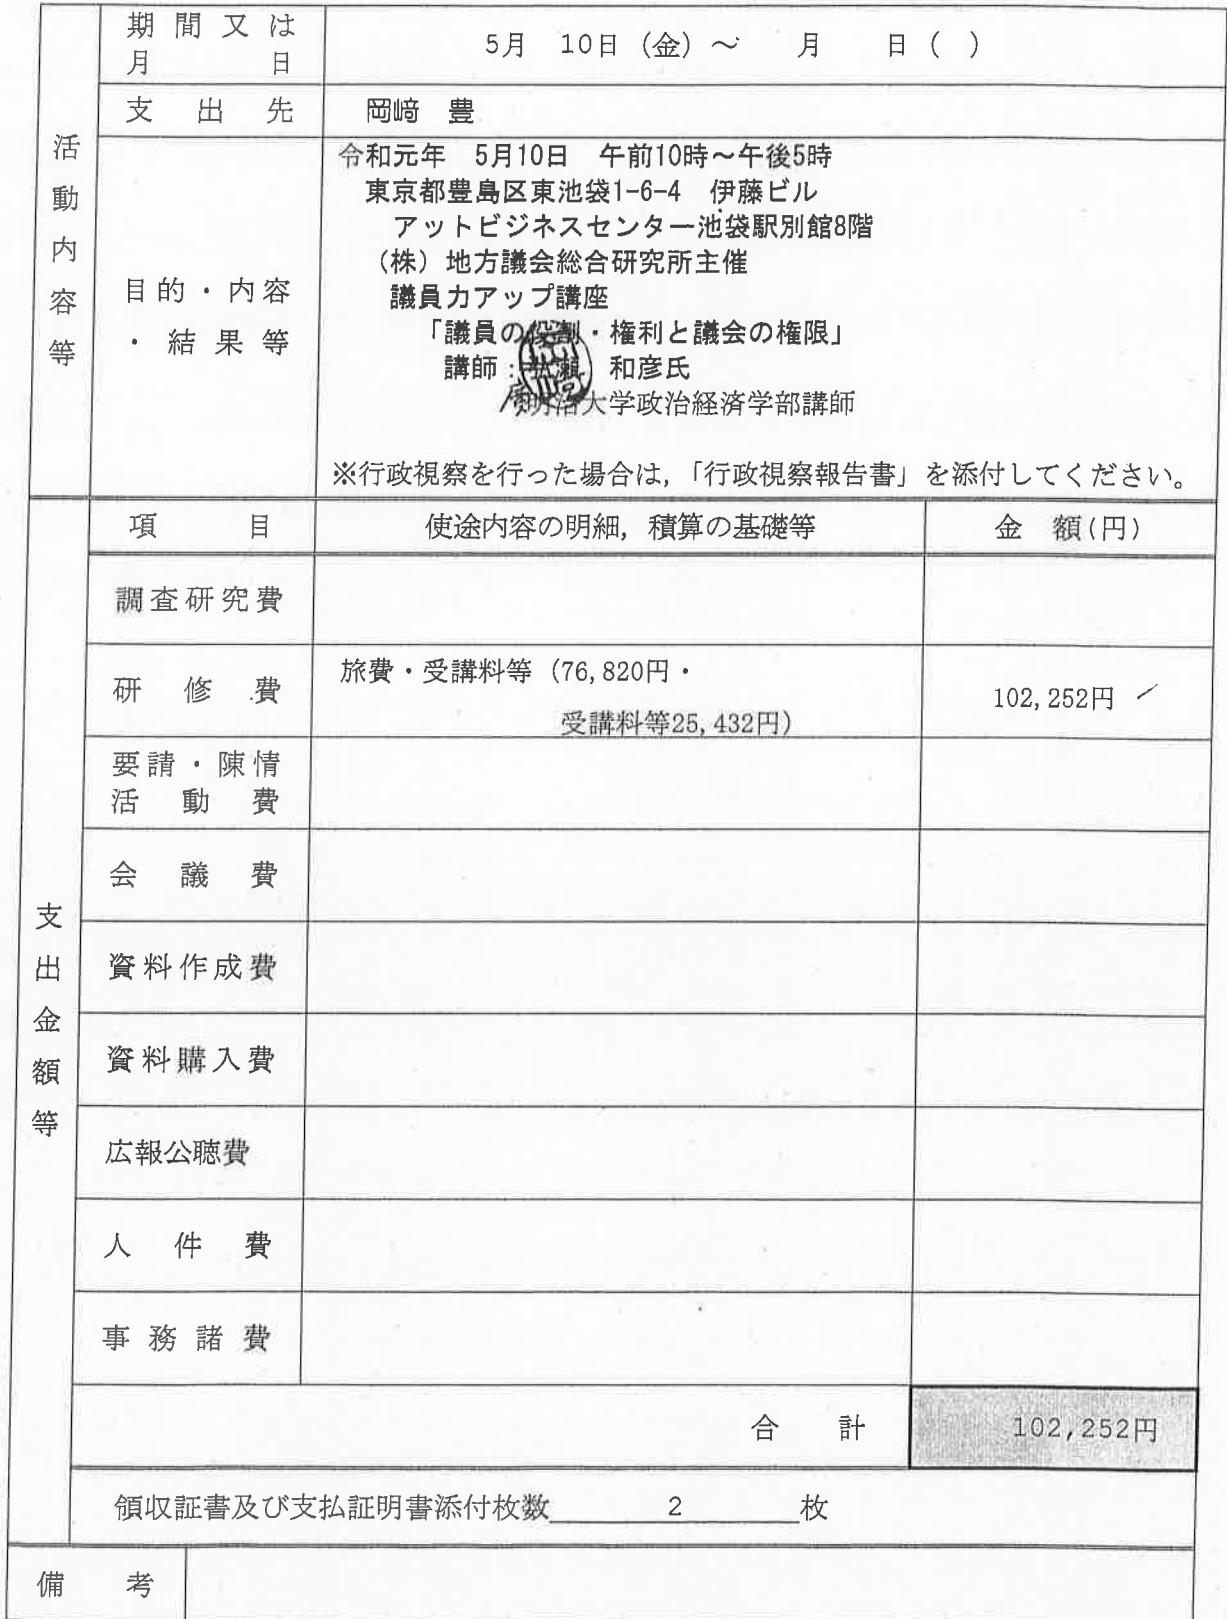 期間又は
月　日
5月　10日（金）～　月　日（　）
支出先
岡﨑　豊
活動内容等
目的・内容
・結果等
令和元年　5月10日　午前10時～午後5時
東京都豊島区東池袋1-6-4　伊藤ビル
アットビジネスセンター池袋駅別館8階
（株）地方議会総合研究所主催
議員力アップ講座
「議員の役割・権利と議会の権限」
講師：　和彦氏
明治大学政治経済学部講師
※行政視察を行った場合は,「行政視察報告書」を添付してください。
項　目
使途内容の明細, 積算の基礎等
金　額(円)
支出金額等
調査研究費
研修費
旅費・受講料等（76,820円・
受講料等25,432円）
102,252円
要請・陳情
活動費
会議費
資料作成費
資料購入費
広報公聴費
人件費
事務諸費
合　計
102,252円
領収証書及び支払証明書添付枚数　2　枚
備　考